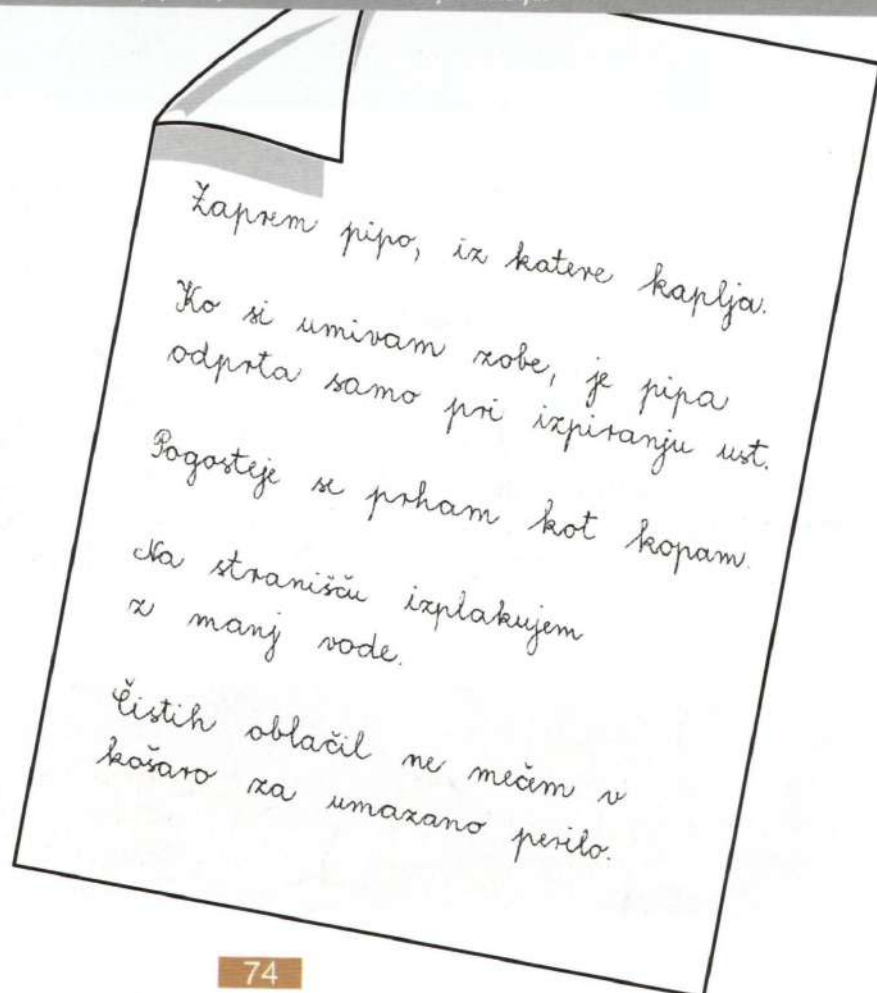 Zaprem pipo, iz katere kaplja.
Ko si umivam zobe, je pipa
odprta samo pri izpiranju ust.
Pogosteje se prham kot kopam.
Na stranišču izplakujem
z manj vode.
Čistih oblačil ne mečem v
košaro za umazano perilo.
74